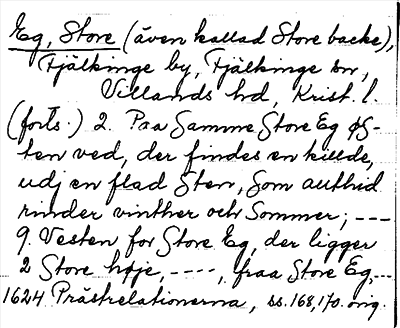 Eg, Store (även kallad Store backe),
Fjälkinge by, Fjälkinge sn,
Villands hd, Krist. l.
(forts.) 2. Paa Samme Store Eg øs-
ten ved, der findes en killde,
udj en flad Sten, Som althid
rinder vinther och Sommer; ----
9. Vesten for Store Eg, der ligger
2 Store høje, ----, fraa Store Eg,---
1624 Prästrelationerna, ss. 168, 170. orig.